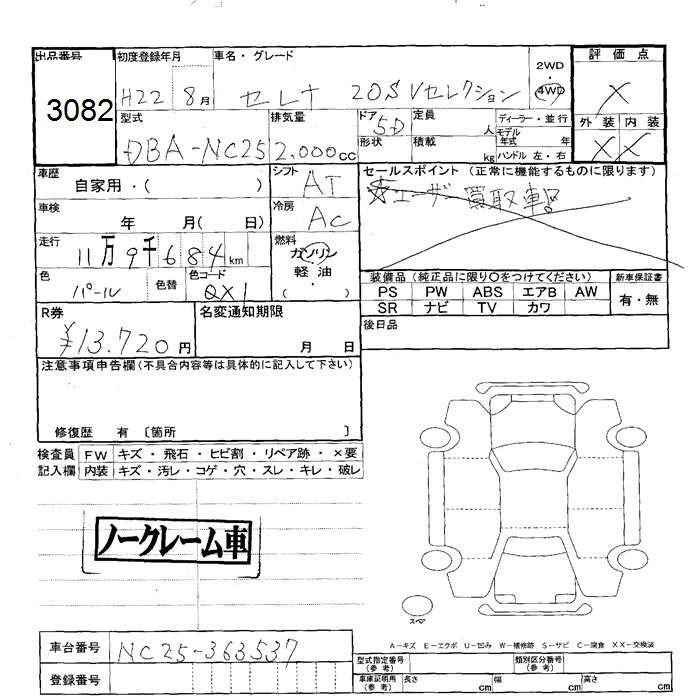 出品番号 初度登録年月 車名・グレード 2WD 評価点
3082 H22 8月 セレナ 20S Vセレクション ・4WD X
型式 排気量 ドア 定員 ディーラー・並行 外装 内装
DBA-NC25 2.000cc 5D 人 モデル年式 年 X X
形状 積載 kg ハンドル 左・右
車歴 シフト セールスポイント (正常に機能するものに限ります)
自家用・( ) AT ☆ユーザー買取車!
車検 冷房
年 月( 日) AC
走行 燃料
11万9千684km ガソリン
軽油
( ・ )
色 色替 色コード 装備品 (純正品に限り○をつけてください) 新車保証書
パール QX1 PS PW ABS エアB AW 有・無
SR ナビ TV カワ
R券 名変通知期限 後日品
¥13.720円 月 日
注意事項申告欄(不具合内容等は具体的に記入して下さい)
修復歴 有 〔箇所 〕
検査員 FW キズ・飛石・ヒビ割・リペア跡・×要
記入欄 内装 キズ・汚レ・コゲ・穴・スレ・キレ・破レ
ノークレーム車
スペア
A-キズ E-エクボ U-凹み W-補修跡 S-サビ C-腐食 XX-交換済
車台番号 NC25-363537
登録番号
型式指定番号(参考) 類別区分番号(参考)
車庫証明用(参考) 長さ cm 幅 cm 高さ cm